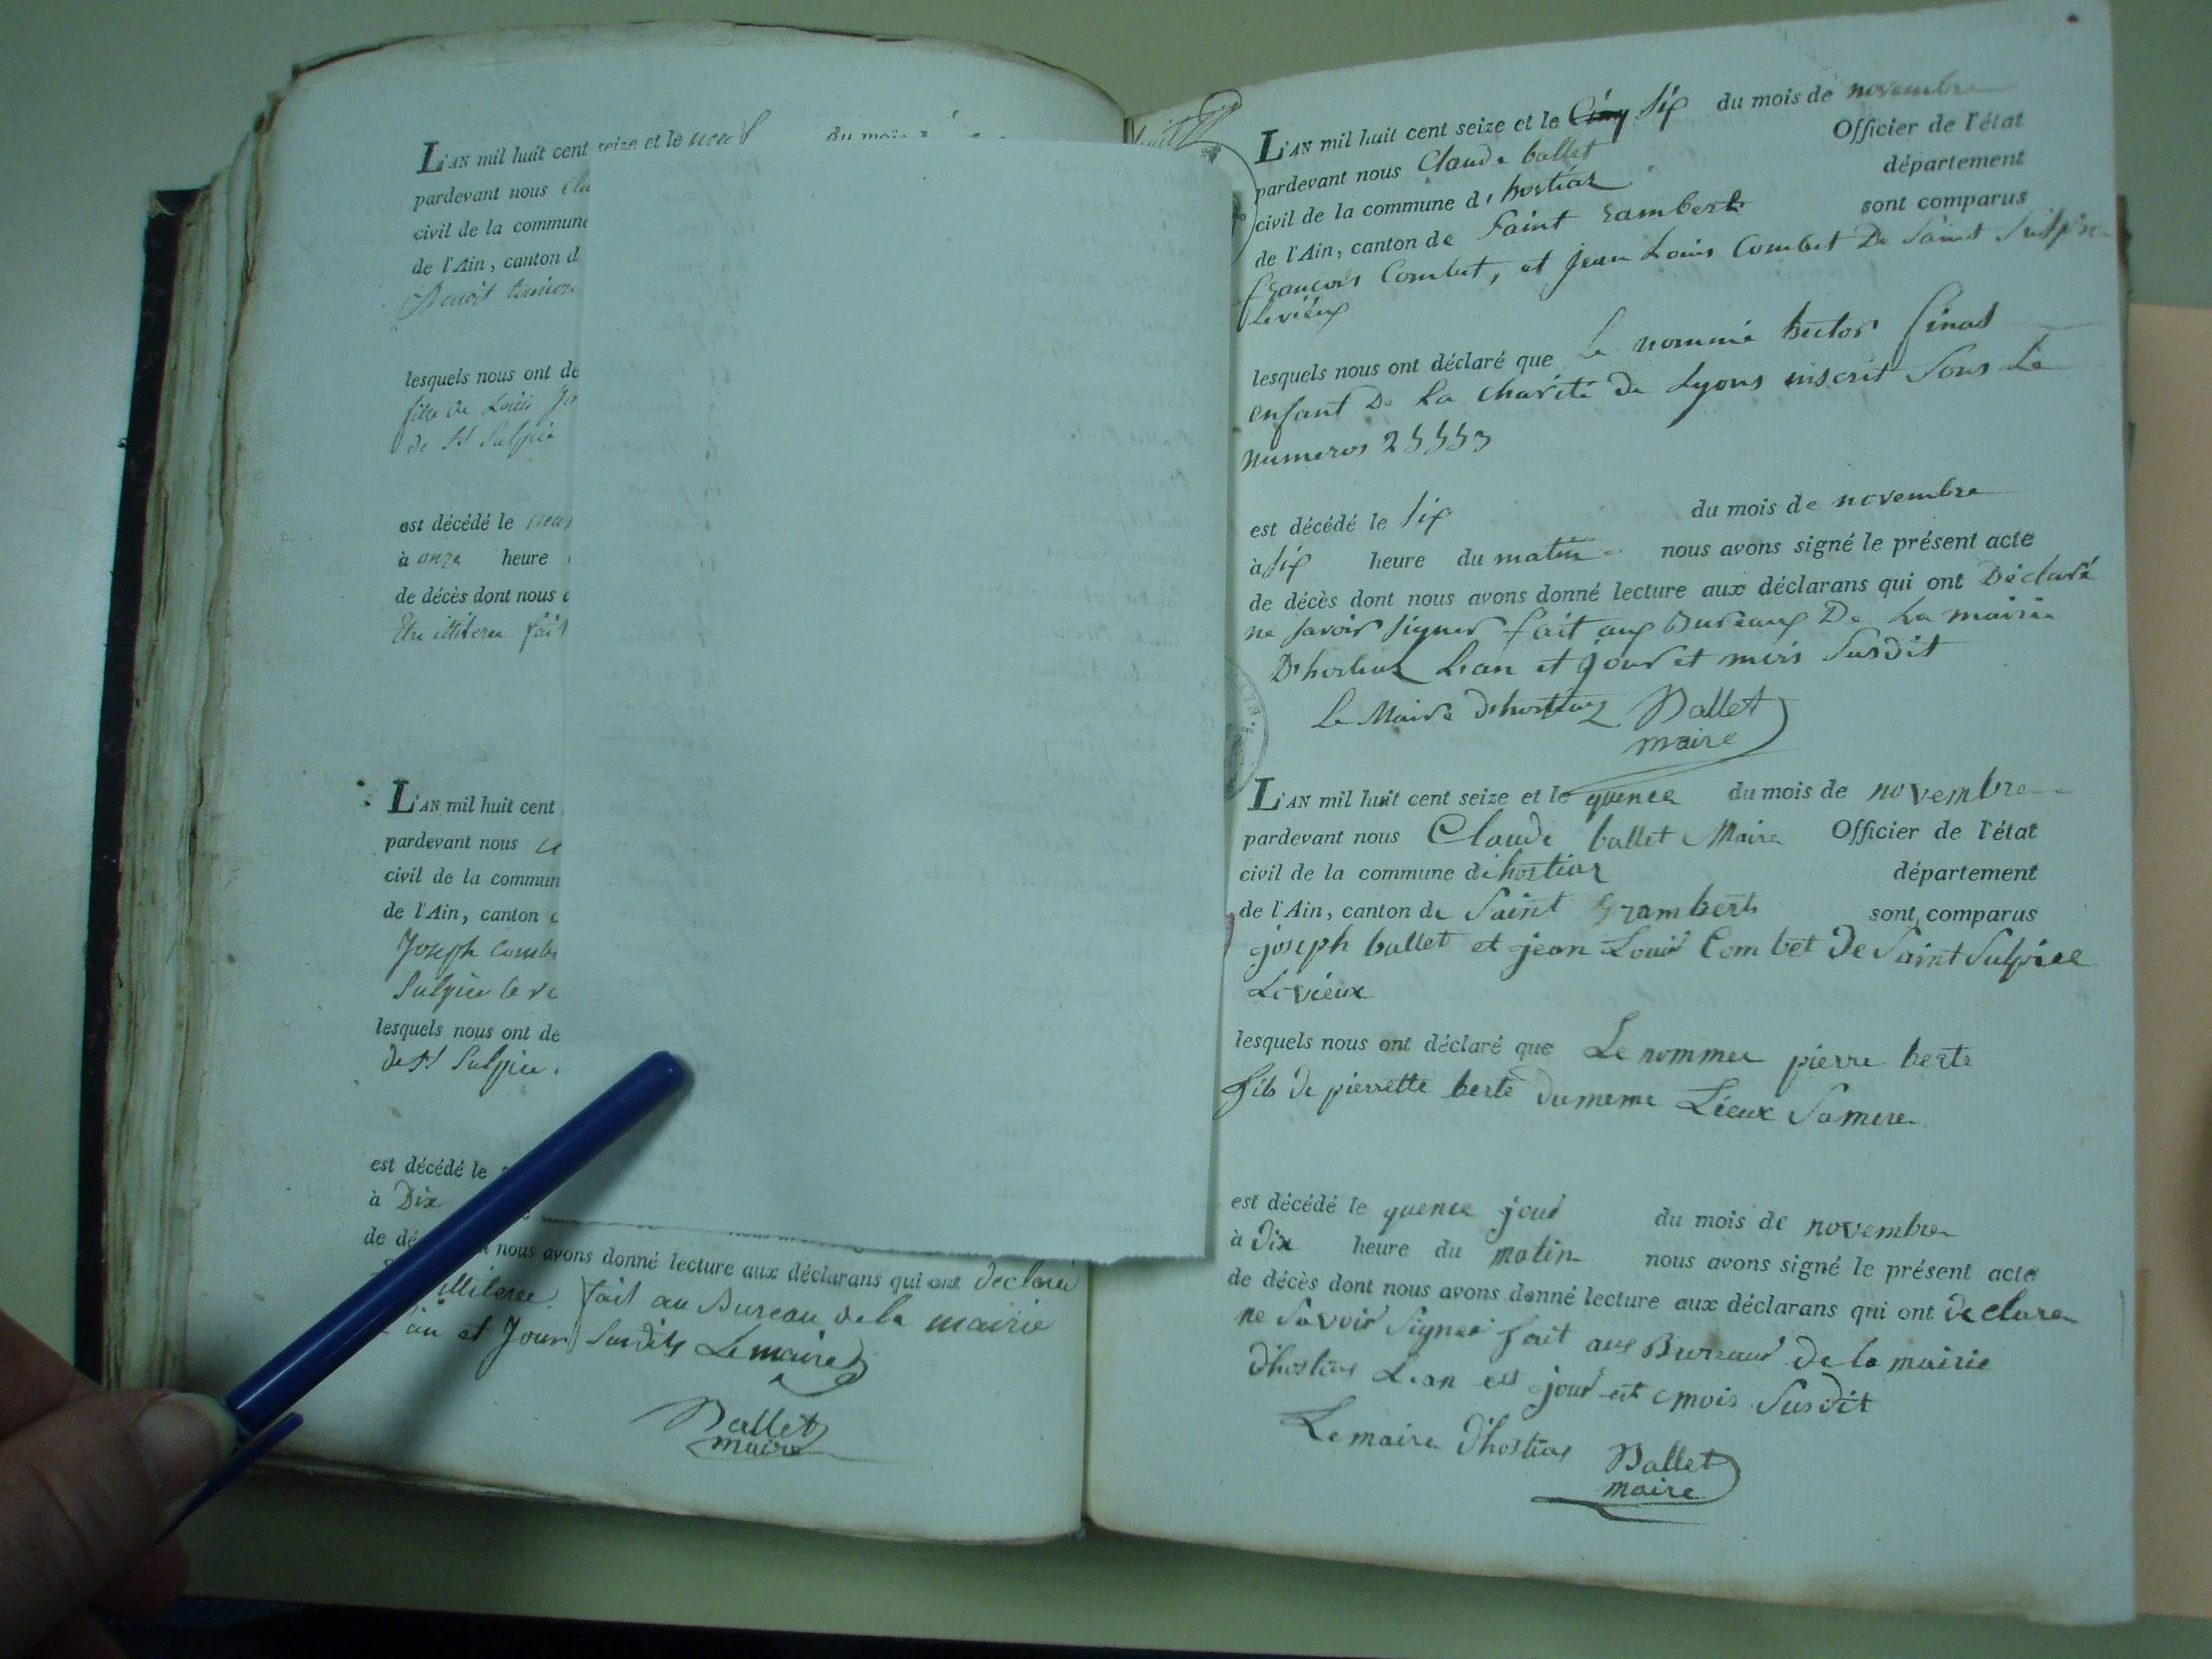 L'AN mil huit cent seize et le neuf
pardevant nous
civil de la commune
de l'Ain, canton d
Benoit
lesquels nous ont de
fille de Louis
de St Sulpice
est décédé le
à onze heure
de décès dont nous
Etre illiteree fait
L'AN mil huit cent
pardevant nous
civil de la commun
de l'Ain, canton
Joseph Comb
Sulpice le v
lesquels nous ont de
de St Sulpice
est décédé le
à Dix
de dé nous avons donné lecture aux déclarans qui ont declaré
illiteree fait au Bureau de la mairie
an et Jour Susdits Le maire
Ballet
maire
L'AN mil huit cent seize et le Cinq Six du mois de novembre
pardevant nous Claude ballet Officier de l'état
civil de la commune d'hostiaz département
de l'Ain, canton de Saint rambert sont comparus
françois Combet, et jean Louis Combet De Saint Sulpice
le vieux
lesquels nous ont déclaré que le nommé hector
enfant De La charité de Lyons inscrit Sous Le
numeros
est décédé le Six du mois de novembre
à Six heure du matin nous avons signé le présent acte
de décès dont nous avons donné lecture aux déclarans qui ont Déclaré
ne savoir signer fait aux Bureaux De La mairie
D'hostiaz L'an et jour et mois Susdit
Le Maire d'hostiaz Ballet
maire
L'AN mil huit cent seize et le quence du mois de novembre
pardevant nous Claude ballet Maire Officier de l'état
civil de la commune d'hostiaz département
de l'Ain, canton de Saint rambert sont comparus
joseph ballet et jean Louis Combet De Saint Sulpice
Le vieux
lesquels nous ont déclaré que Le nommer pierre berte
fils de pierrette berte du meme Lieux Sa mere
est décédé le quence jour du mois de novembre
à Dix heure du matin nous avons signé le présent acte
de décès dont nous avons donné lecture aux déclarans qui ont declare
ne Savoir Signer fait aux Bureaux de la mairie
d'hostiaz L'an et jour et mois Susdit
Le maire d'hostiaz Ballet
maire